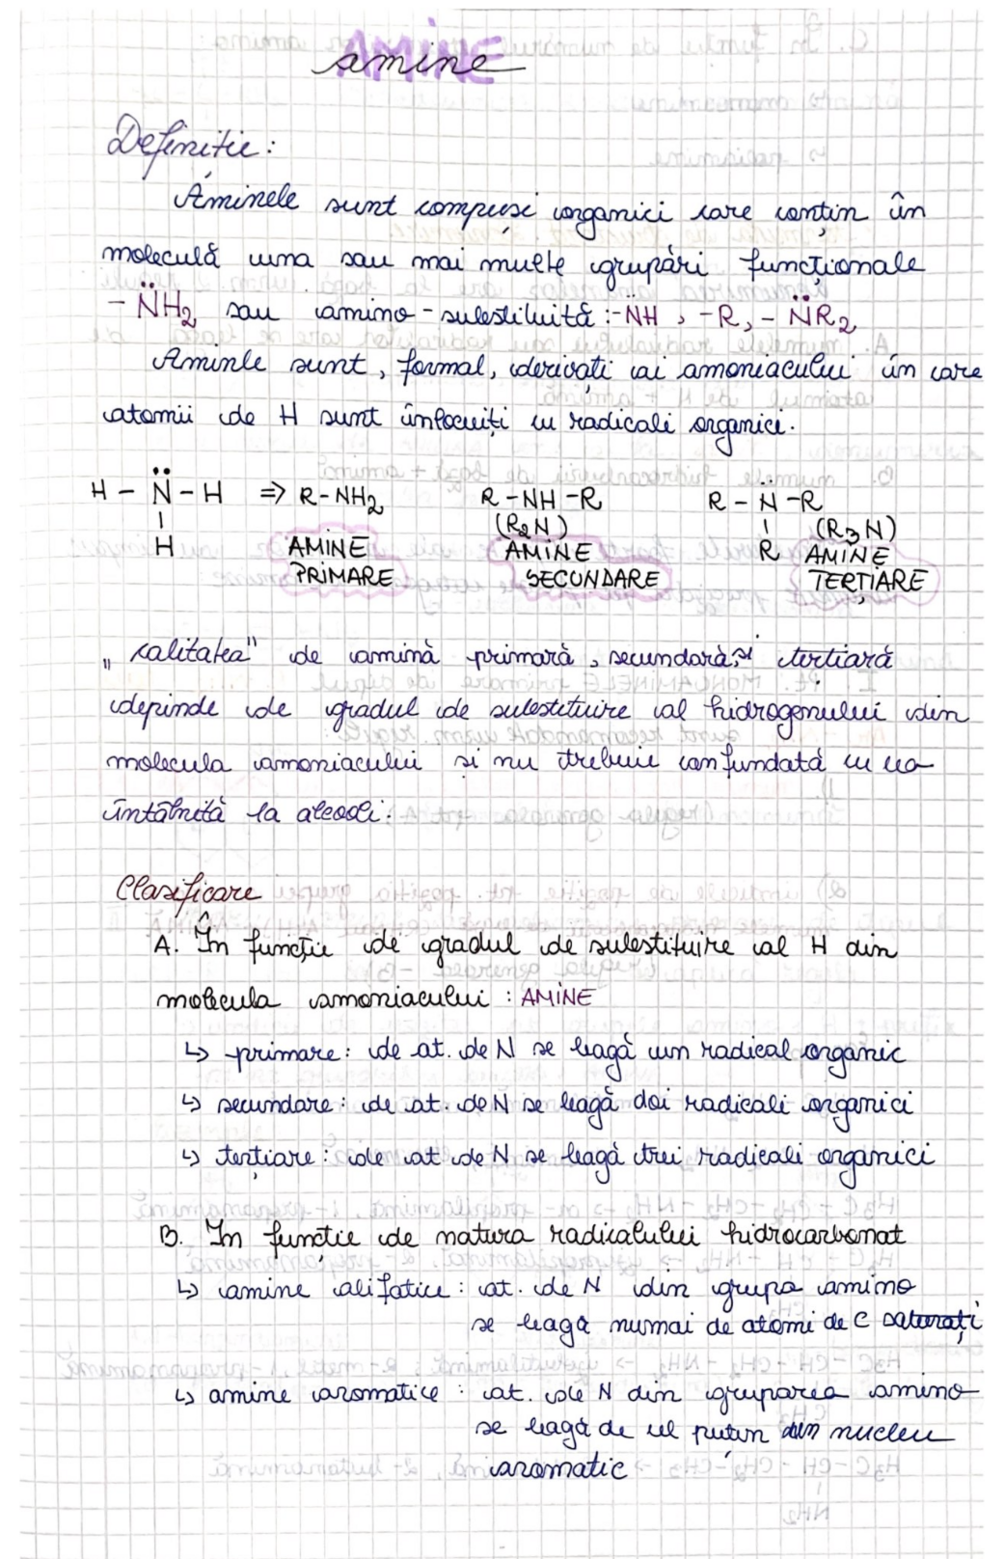 AMINE
amine
Definitie:
Aminele sunt compuși organici care conțin în
moleculă una sau mai multe grupări funcționale
- N̈H₂ sau amino-substituită: -NH, -R, - N̈R₂
Aminle sunt, formal, derivați ai amoniacului în care
atomii de H sunt înlocuiți cu radicali organici.
H - N̈ - H ⇒ R-NH₂ R-NH-R R - N̈ -R
| (R₂N) | (R₃N)
H AMINE AMINE R AMINE
PRIMARE SECUNDARE TERȚIARE
„calitatea" de amină primară, secundară și terțiară
depinde de gradul de substituire al hidrogenului din
molecula amoniacului și nu trebuie confundată cu cea
întâlnită la alcooli.
Clasificare
A. În funcție de gradul de substituire al H din
molecula amoniacului : AMINE
↳ primare: de at. de N se leagă un radical organic
↳ secundare: de at. de N se leagă doi radicali organici
↳ terțiare: de at de N se leagă trei radicali organici
B. În funcție de natura radicalului hidrocarbonat
↳ amine alifatice : at. de N din grupa amino
se leagă numai de atomi de C saturați
↳ amine aromatice : at. de N din gruparea amino
se leagă de cel puțin un nucleu
aromatic